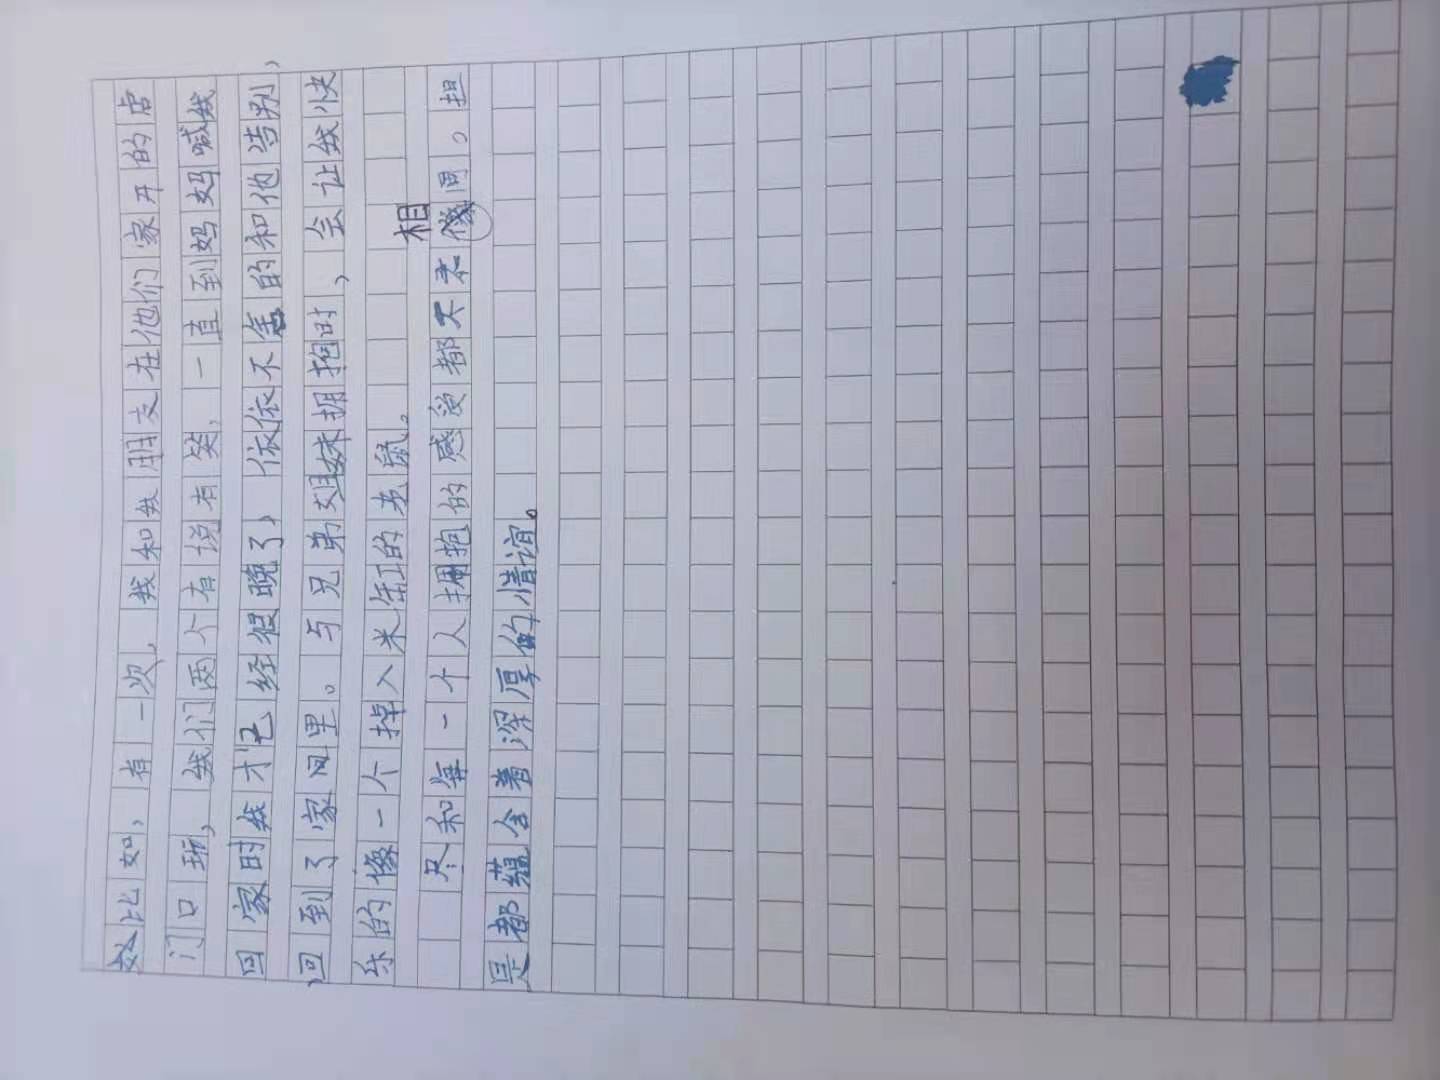 比如，有一次，我和我朋友在他们家开的店
门口玩，我们两个有说有笑，一直到妈妈喊我
回家时我才已经很晚了，依依不舍的和他告别，
回到了家里。与兄弟姐妹拥抱时，会让我快
乐的像一个掉入米缸的老鼠。
尽和每一个人拥抱的感受都不太相同。但
是都蕴含着深厚的情谊。